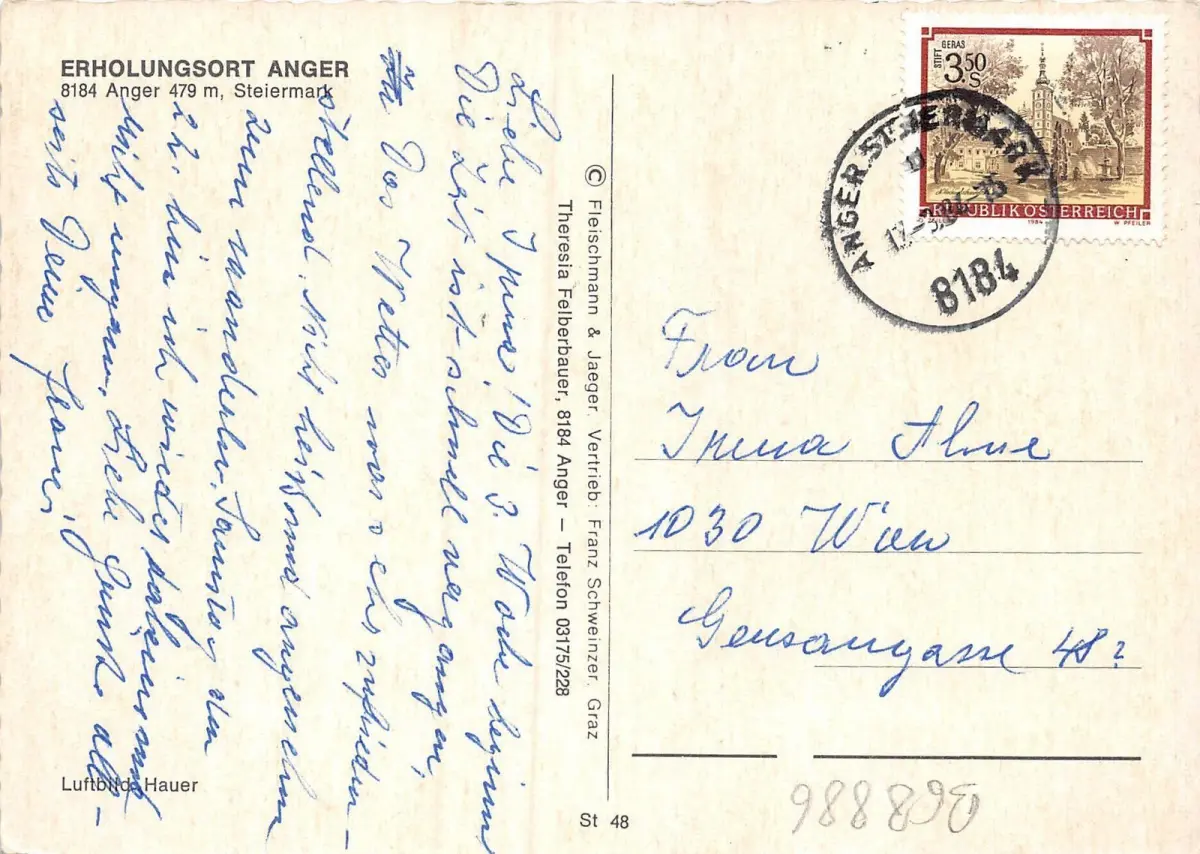 ERHOLUNGSORT ANGER
8184 Anger 479 m, Steiermark
Liebe Irma! Die 3. Woche beginnt
Die Zeit ist schnell vergangen,
Das Wetter war sehr zufrieden-
stellend. Nicht heiß und angenehm
zum wandern. Samstag den
22. bin ich wieder daheim und
Liebe Grüße aller-
seits Deine
Luftbild Hauer
© Fleischmann & Jaeger, Vertrieb: Franz Schweinzer, Graz
Theresia Felberbauer, 8184 Anger – Telefon 03175/228
St 48
STIFT GERAS
3.50 S
REPUBLIK ÖSTERREICH
1984
W. PFEILER
ANGER, STEIERMARK
8184
Frau
Irma
1030 Wien
Geusaugasse 48
988896